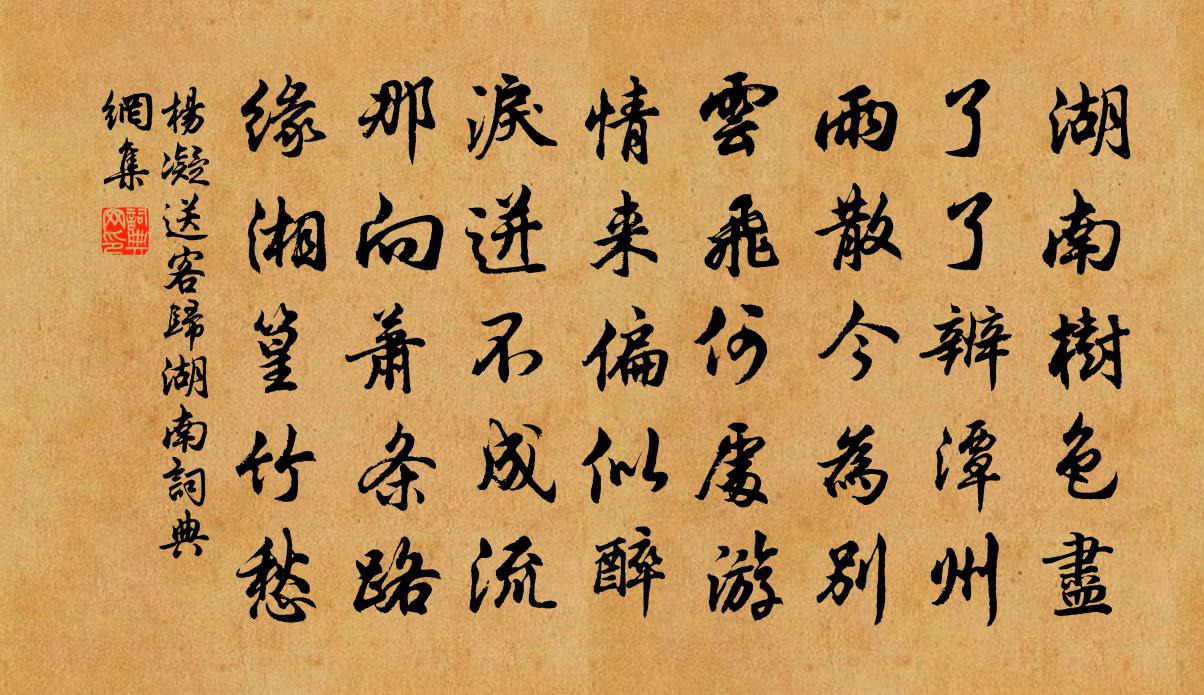 湖南樹色盡
了了辨潭州
雨散今為別
雲飛何處游
情来偏似醉
淚迸不成流
那向蕭条路
缘湘篁竹愁
楊凝送客歸湖南詞典
網集
詞典網印